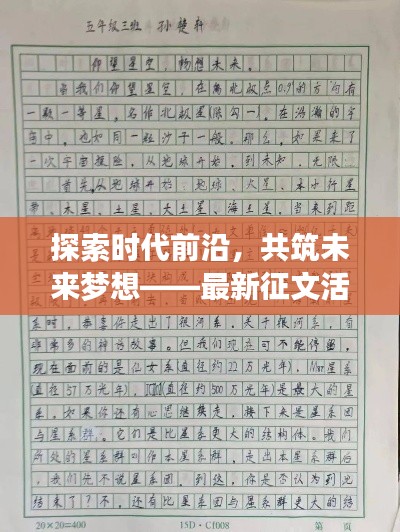 五年级三班 孙楚轩
仰望星空，畅想未来。
当我们仰望星空，在离北极点0.9的方向有
一颗一等星。名作北极星(陈勾一)。在浩瀚的宇
宙中，也如同一粒沙子一般。那么，如果来了
一次宇宙探险，从地球开始，到未知、无限
首先从地球开始，地球、火星、小行星
带、木星、土星、天王星、海王星，当来到
探索时代前沿，共筑未
来梦想——最新征文活
系时，恭喜你走出了银河系，关于银河系，自
非常多的神话故事。但我们现在可不能停留，
现在面前的是仙女系(直径约22万光年)，
(直径57万光年)，(直径约500万光年)是最大的星
系。如果你还有心思继续走，接下来是星系团
与星系群。它们是比星系更大的结构体。我们
所处的星系群叫作本星系群。走出本星系群后
，我们先不说星系团。到这，你是否认为到此
结束了？不，还有比星系团与星系群更大的结
20×20=400 15D·Cf008 第 页